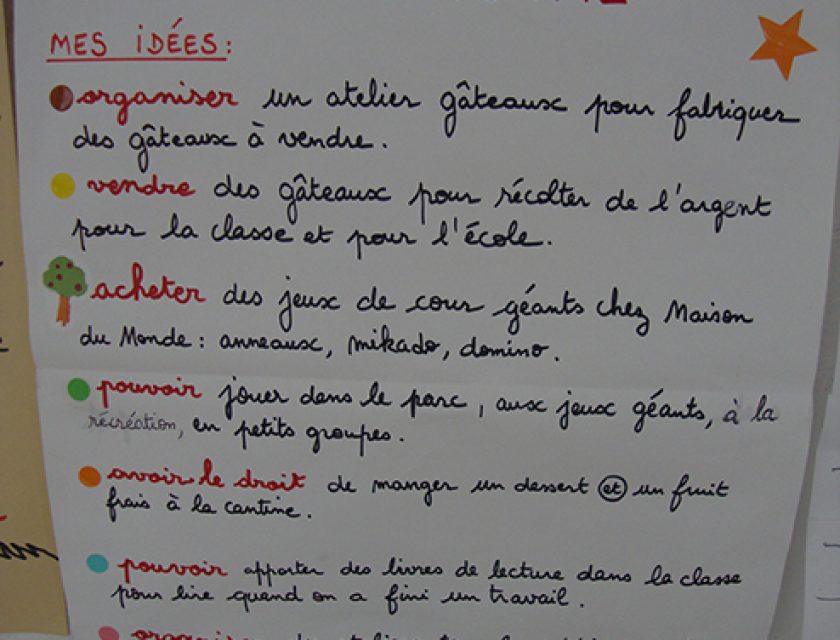 MES IDÉES :
organiser un atelier gâteaux pour fabriquer
des gâteaux à vendre.
vendre des gâteaux pour récolter de l'argent
pour la classe et pour l'école.
acheter des jeux de cour géants chez Maison
du Monde : anneaux, mikado, domino.
pouvoir jouer dans le parc, aux jeux géants, à la
récréation, en petits groupes.
avoir le droit de manger un dessert et un fruit
frais à la cantine.
pouvoir apporter des livres de lecture dans la classe
pour lire quand on a fini un travail.